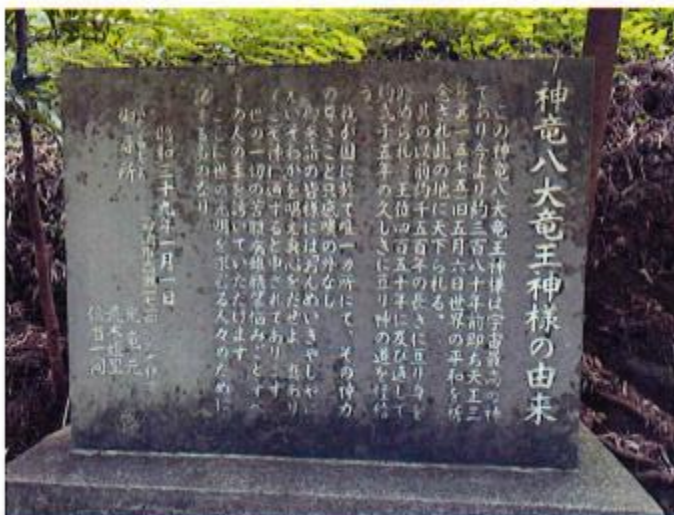 神竜八大竜王神様の由来
この神竜八大竜王神様は宇宙最高の神
であり今より約三百八十年前即ち天正三
年第一五七五旧五月六日世界の平和を祈
念され此の地に天下られる。
其の以前約千五百年の長きに亘り身を
められ、王位四百五十年に及び通して
約弐千五年の久しきに亘り神の道を
う。
我が国に於て唯一ヵ所にて、その神力
の尊きこと只感嘆の外なし
御参詣の皆様にはおんめいきやしやに
えいそわかを唱え真心をだせよ
こそ神に通ずると申されてあります
世の一切の苦難病難悩みごとすべ
ての人の幸を導いていただけます
ここに世の光明を求むる人々のために
するものなり
昭和三十九年一月一日
御尋所
信者一同